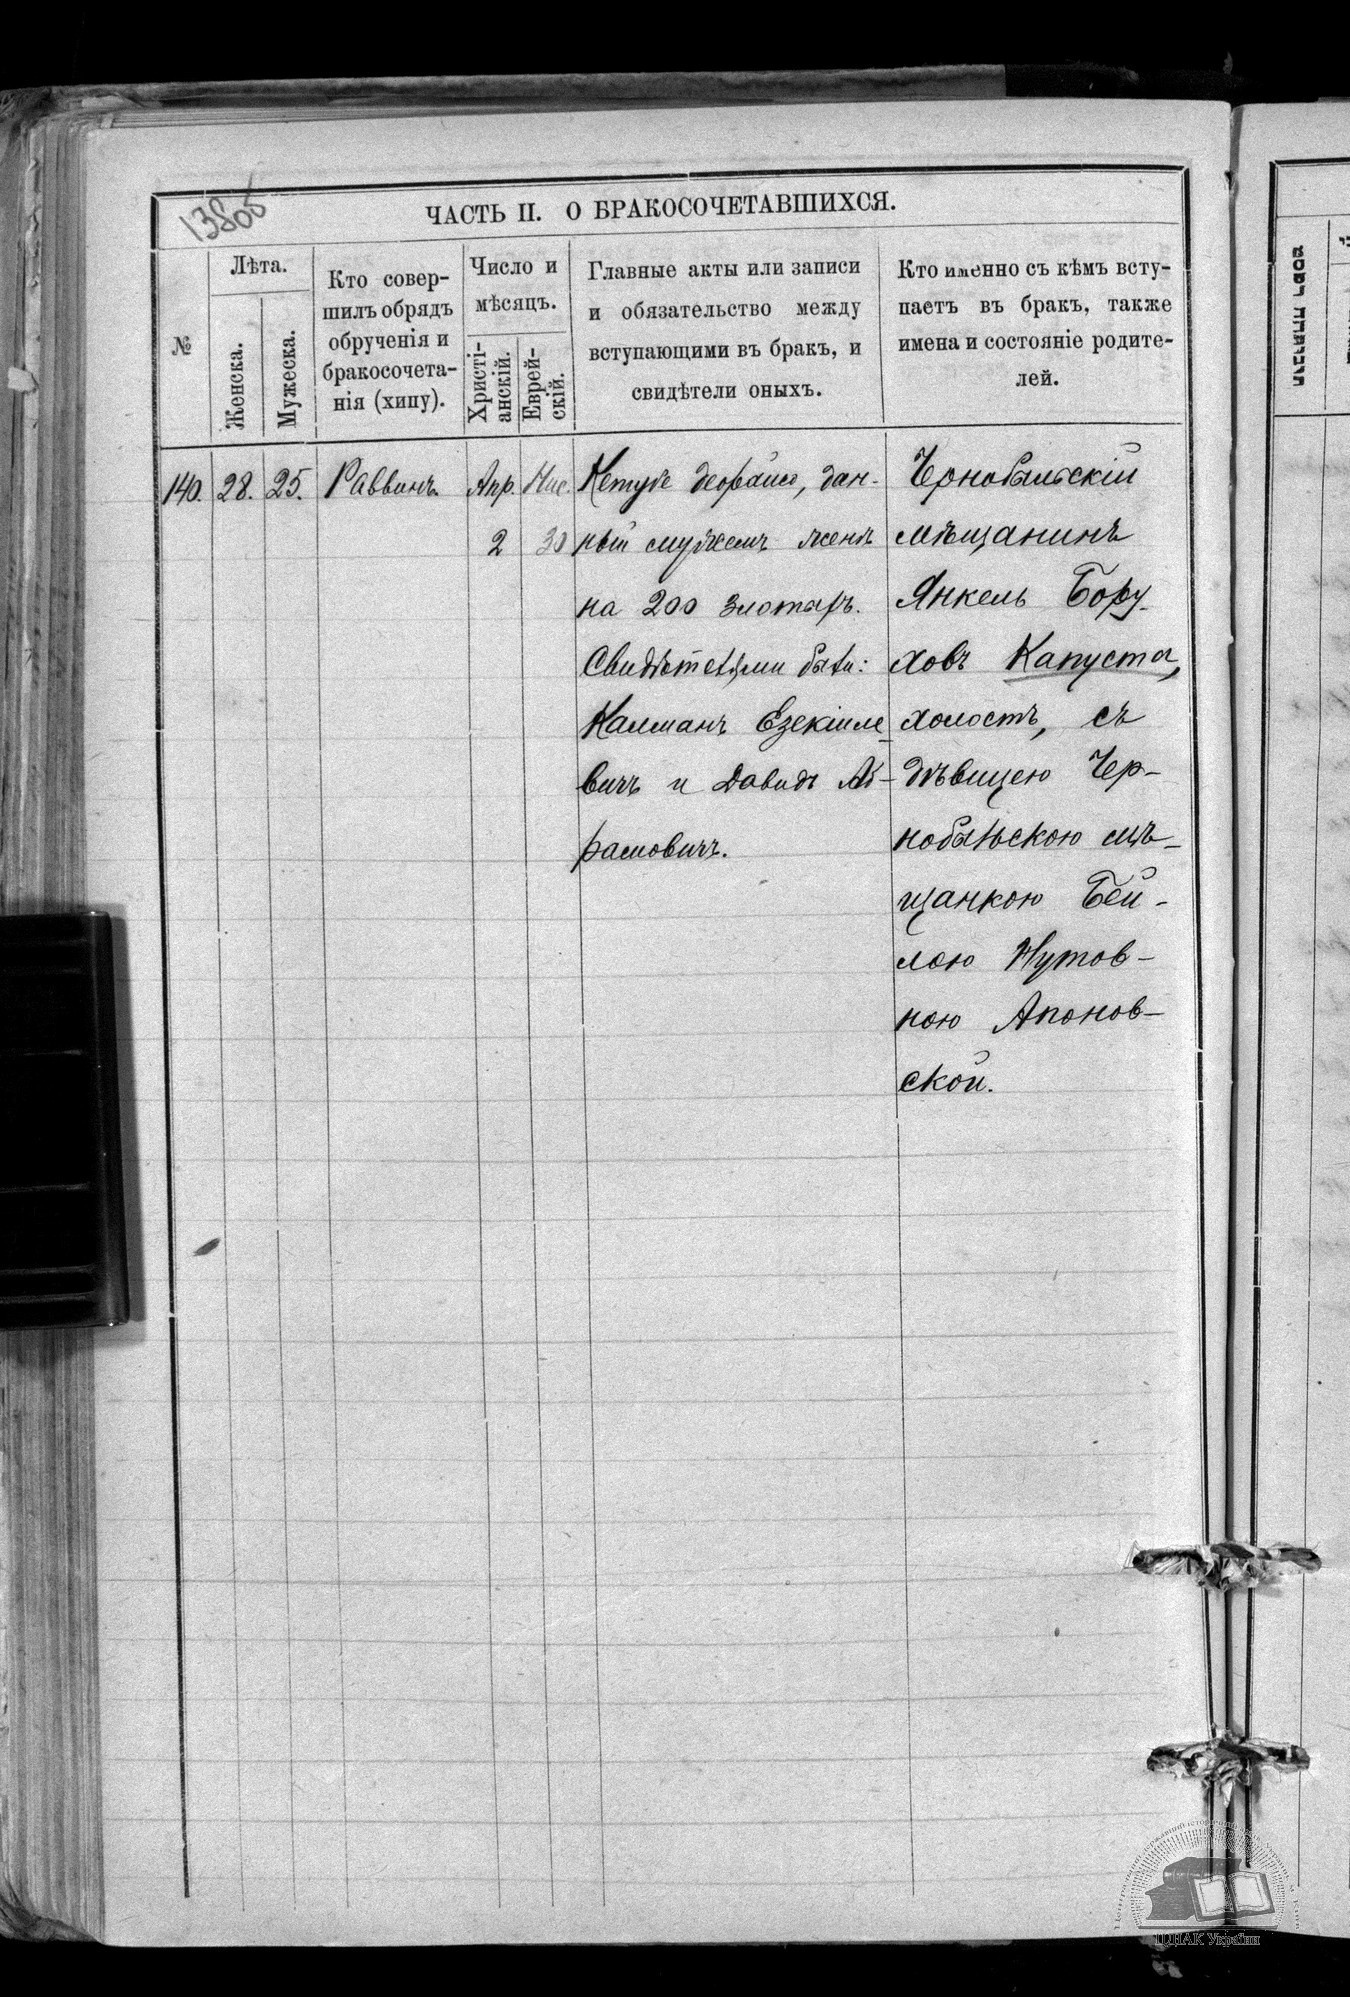 1380б
ЧАСТЬ II. О БРАКОСОЧЕТАВШИХСЯ.
№
Лѣта.
Женска.
Мужеска.
Кто совер-
шилъ обрядъ
обрученія и
бракосочета-
нія (хипу).
Число и
мѣсяцъ.
Христі-
анскій.
Еврей-
скій.
Главные акты или записи
и обязательство между
вступающими въ бракъ, и
свидѣтели оныхъ.
Кто именно съ кѣмъ всту-
паетъ въ бракъ, также
имена и состояніе родите-
лей.
140. 28. 25. Раввинъ. Апр. Нис.
2 30
Кетубе деорайсо, дан-
ный мужемъ женѣ
на 200 злотыхъ.
Свидѣтелями были:
Калманъ Езекіиле
вичъ и Давидъ Аб-
рамовичъ.
Чернобыльскій
мѣщанинъ
Янкель Бору-
ховъ Капуста,
холостъ, съ
дѣвицею Чер-
нобыльскою мѣ-
щанкою Бей-
лою Нутов-
ною Апонов-
ской.
ЦДІАК України